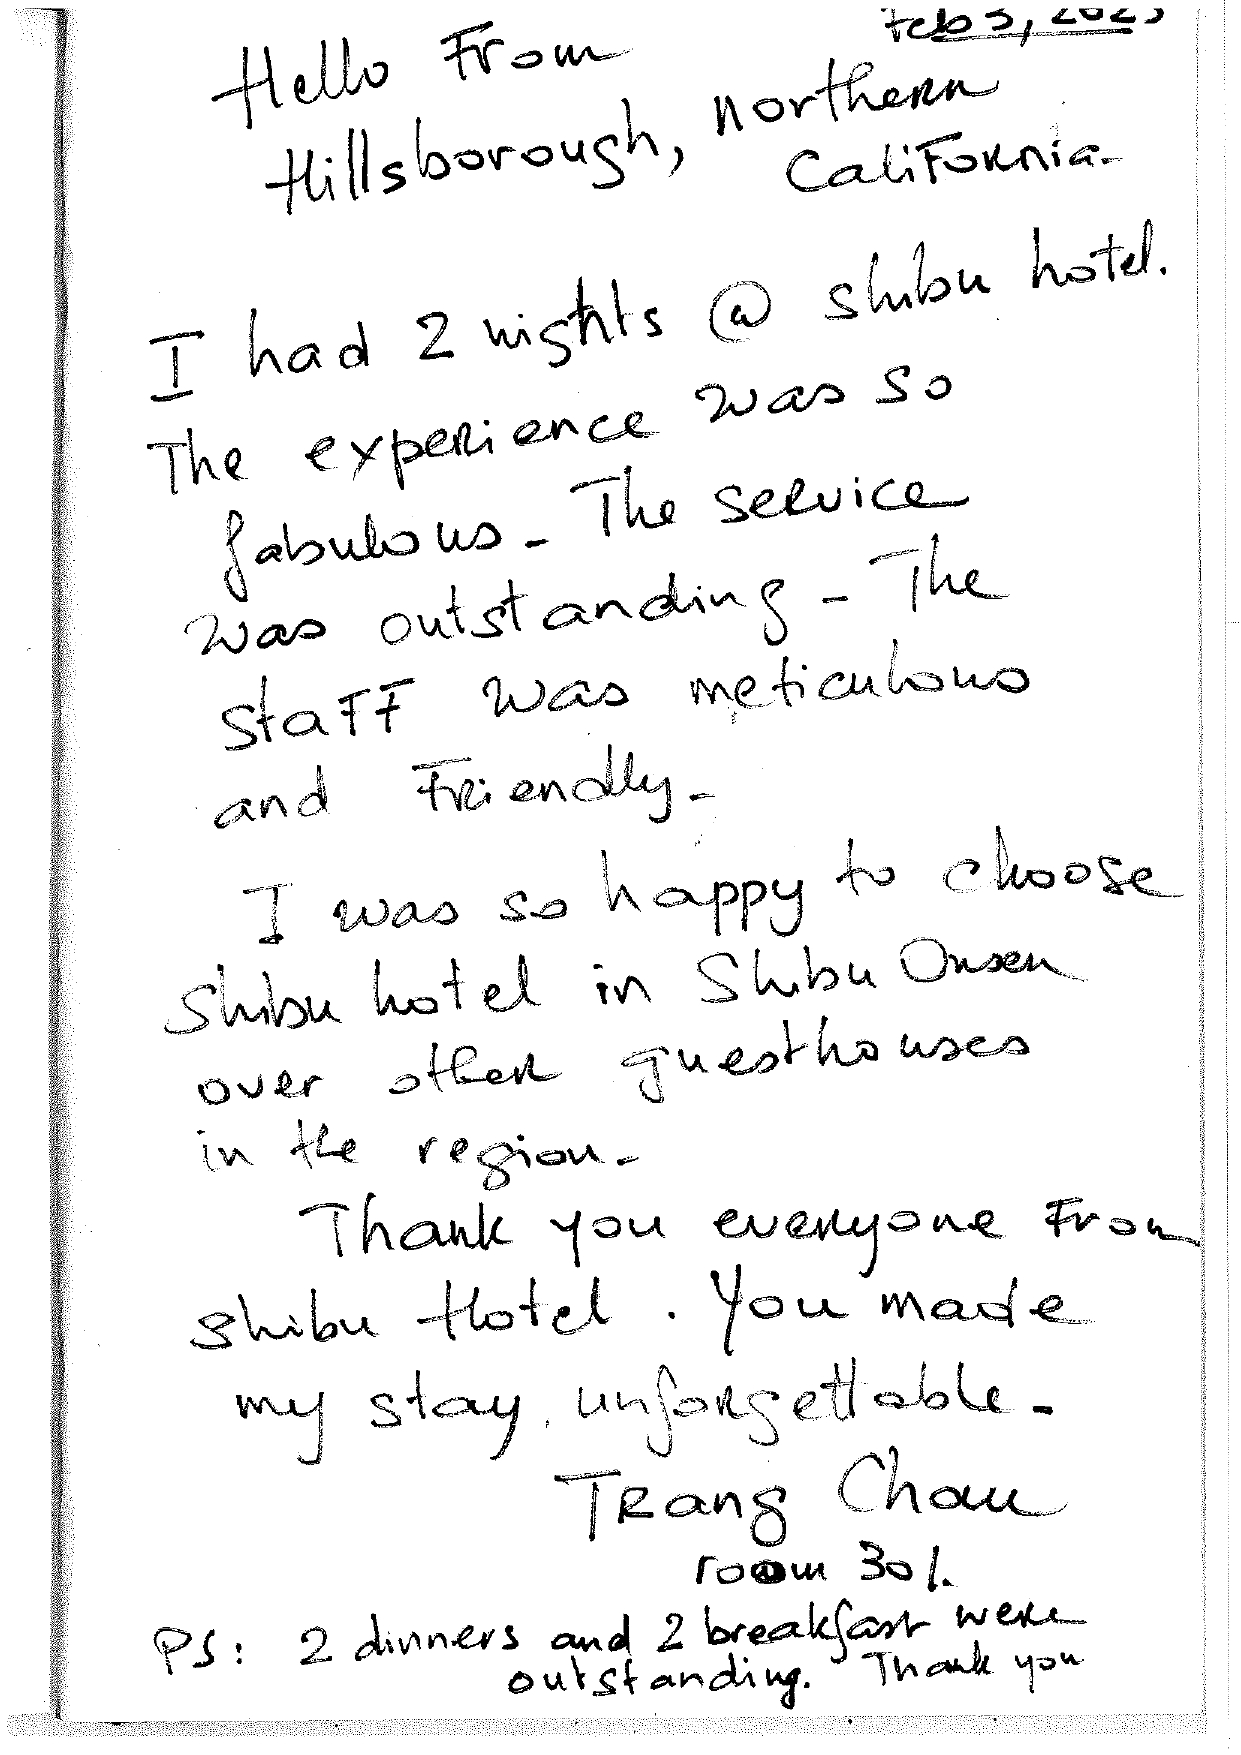 Feb 3, 2023
Hello From
Hillsborough, northern
California.
I had 2 nights @ shibu hotel.
The experience was so
fabulous - The service
was outstanding - The
staff was meticulous
and Friendly -
I was so happy to choose
Shibu hotel in Shibu Onsen
over other guesthouses
in the region -
Thank you everyone From
Shibu Hotel. You made
my stay unforgettable -
Trang Chau
room 301.
PS: 2 dinners and 2 breakfast were
outstanding. Thank you